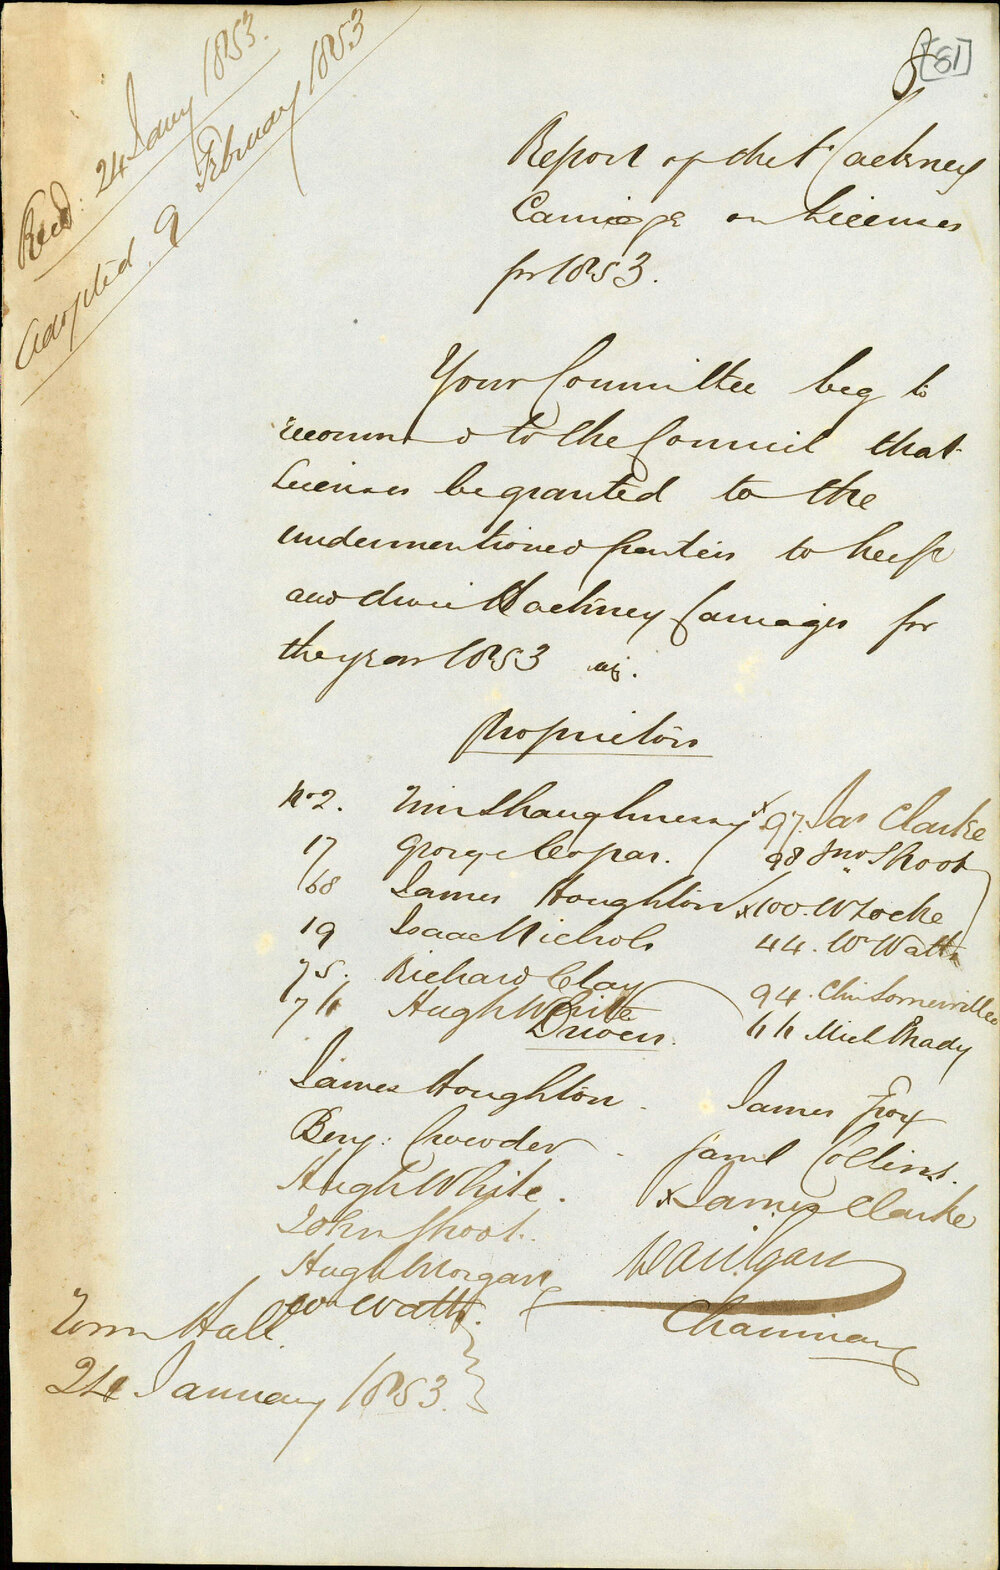 [81]
Recd. 24 Jany 1853.
Adopted. 9 February 1853
Report of the Hackney
Carriage on Licenses
for 1853.
Your Committee beg to
recommend to the Council that
Licenses be granted to the
undermentioned parties to keep
and drive Hackney Carriages for
the year 1853 viz.
Proprietors
No 2. Wm Shaughnessy
17 George
68 James Houghton
19 Isaac Nichols
75. Richard Clay
76 Hugh White
x 97. Jas Clarke
98 Jno Shoot
x 100. W Locke
44. Wm Watts
94. Chr Somerville
66 Michl Brady
Drivers.
James Houghton.
Benj: Crowder.
Hugh White.
John Shoot.
Hugh Morgan
Wm Watts.
James Frox
Saml Collins.
x James Clarke
Chairman
Town Hall
24 January 1853.